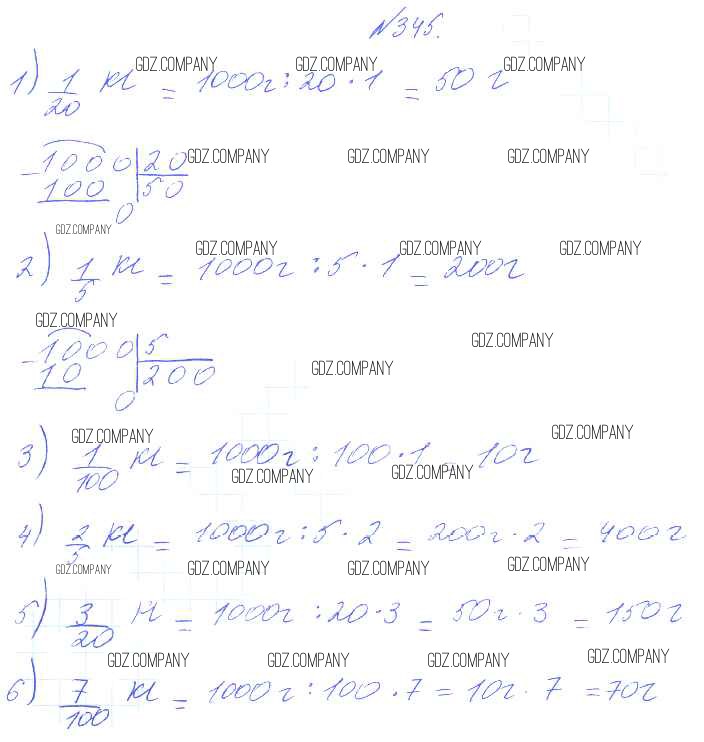 №345.
1) 1/20 кг = 1000г : 20 · 1 = 50 г
GDZ.COMPANY GDZ.COMPANY GDZ.COMPANY
1000 | 20
100 | 50
0
GDZ.COMPANY GDZ.COMPANY GDZ.COMPANY
GDZ.COMPANY
2) 1/5 кг = 1000г : 5 · 1 = 200г
GDZ.COMPANY GDZ.COMPANY GDZ.COMPANY
GDZ.COMPANY
1000 | 5
10 | 200
0
GDZ.COMPANY
GDZ.COMPANY
3) 1/100 кг = 1000г : 100 · 1 = 10г
GDZ.COMPANY GDZ.COMPANY
GDZ.COMPANY GDZ.COMPANY
4) 2/5 кг = 1000г : 5 · 2 = 200г · 2 = 400г
GDZ.COMPANY GDZ.COMPANY GDZ.COMPANY GDZ.COMPANY
5) 3/20 кг = 1000г : 20 · 3 = 50г · 3 = 150г
GDZ.COMPANY GDZ.COMPANY GDZ.COMPANY GDZ.COMPANY
6) 7/100 кг = 1000г : 100 · 7 = 10г · 7 = 70г